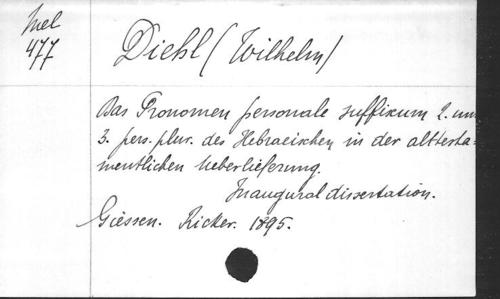 Mel
477
Diehl (Wilhelm)
Das Pronomen personale suffixum 2. und
3. pers. plur. des Hebraeischen in der alttesta-
mentlichen Ueberlieferung.
Inaugural dissertation.
Giessen. Ricker. 1895.